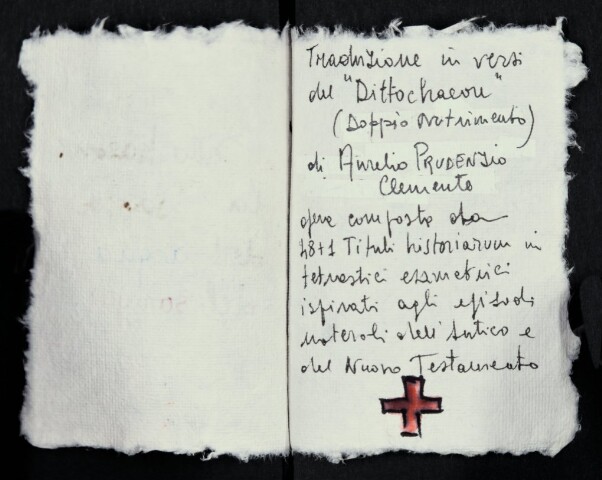 Traduzione in versi
del "Dittochaeon"
(Doppio Nutrimento)
di Aurelio PRUDENZIO
Clemente
opera composta da
48+1 Tituli historiarum in
tetrastici esametrici
ispirati agli episodi
notevoli dell'Antico e
del Nuovo Testamento